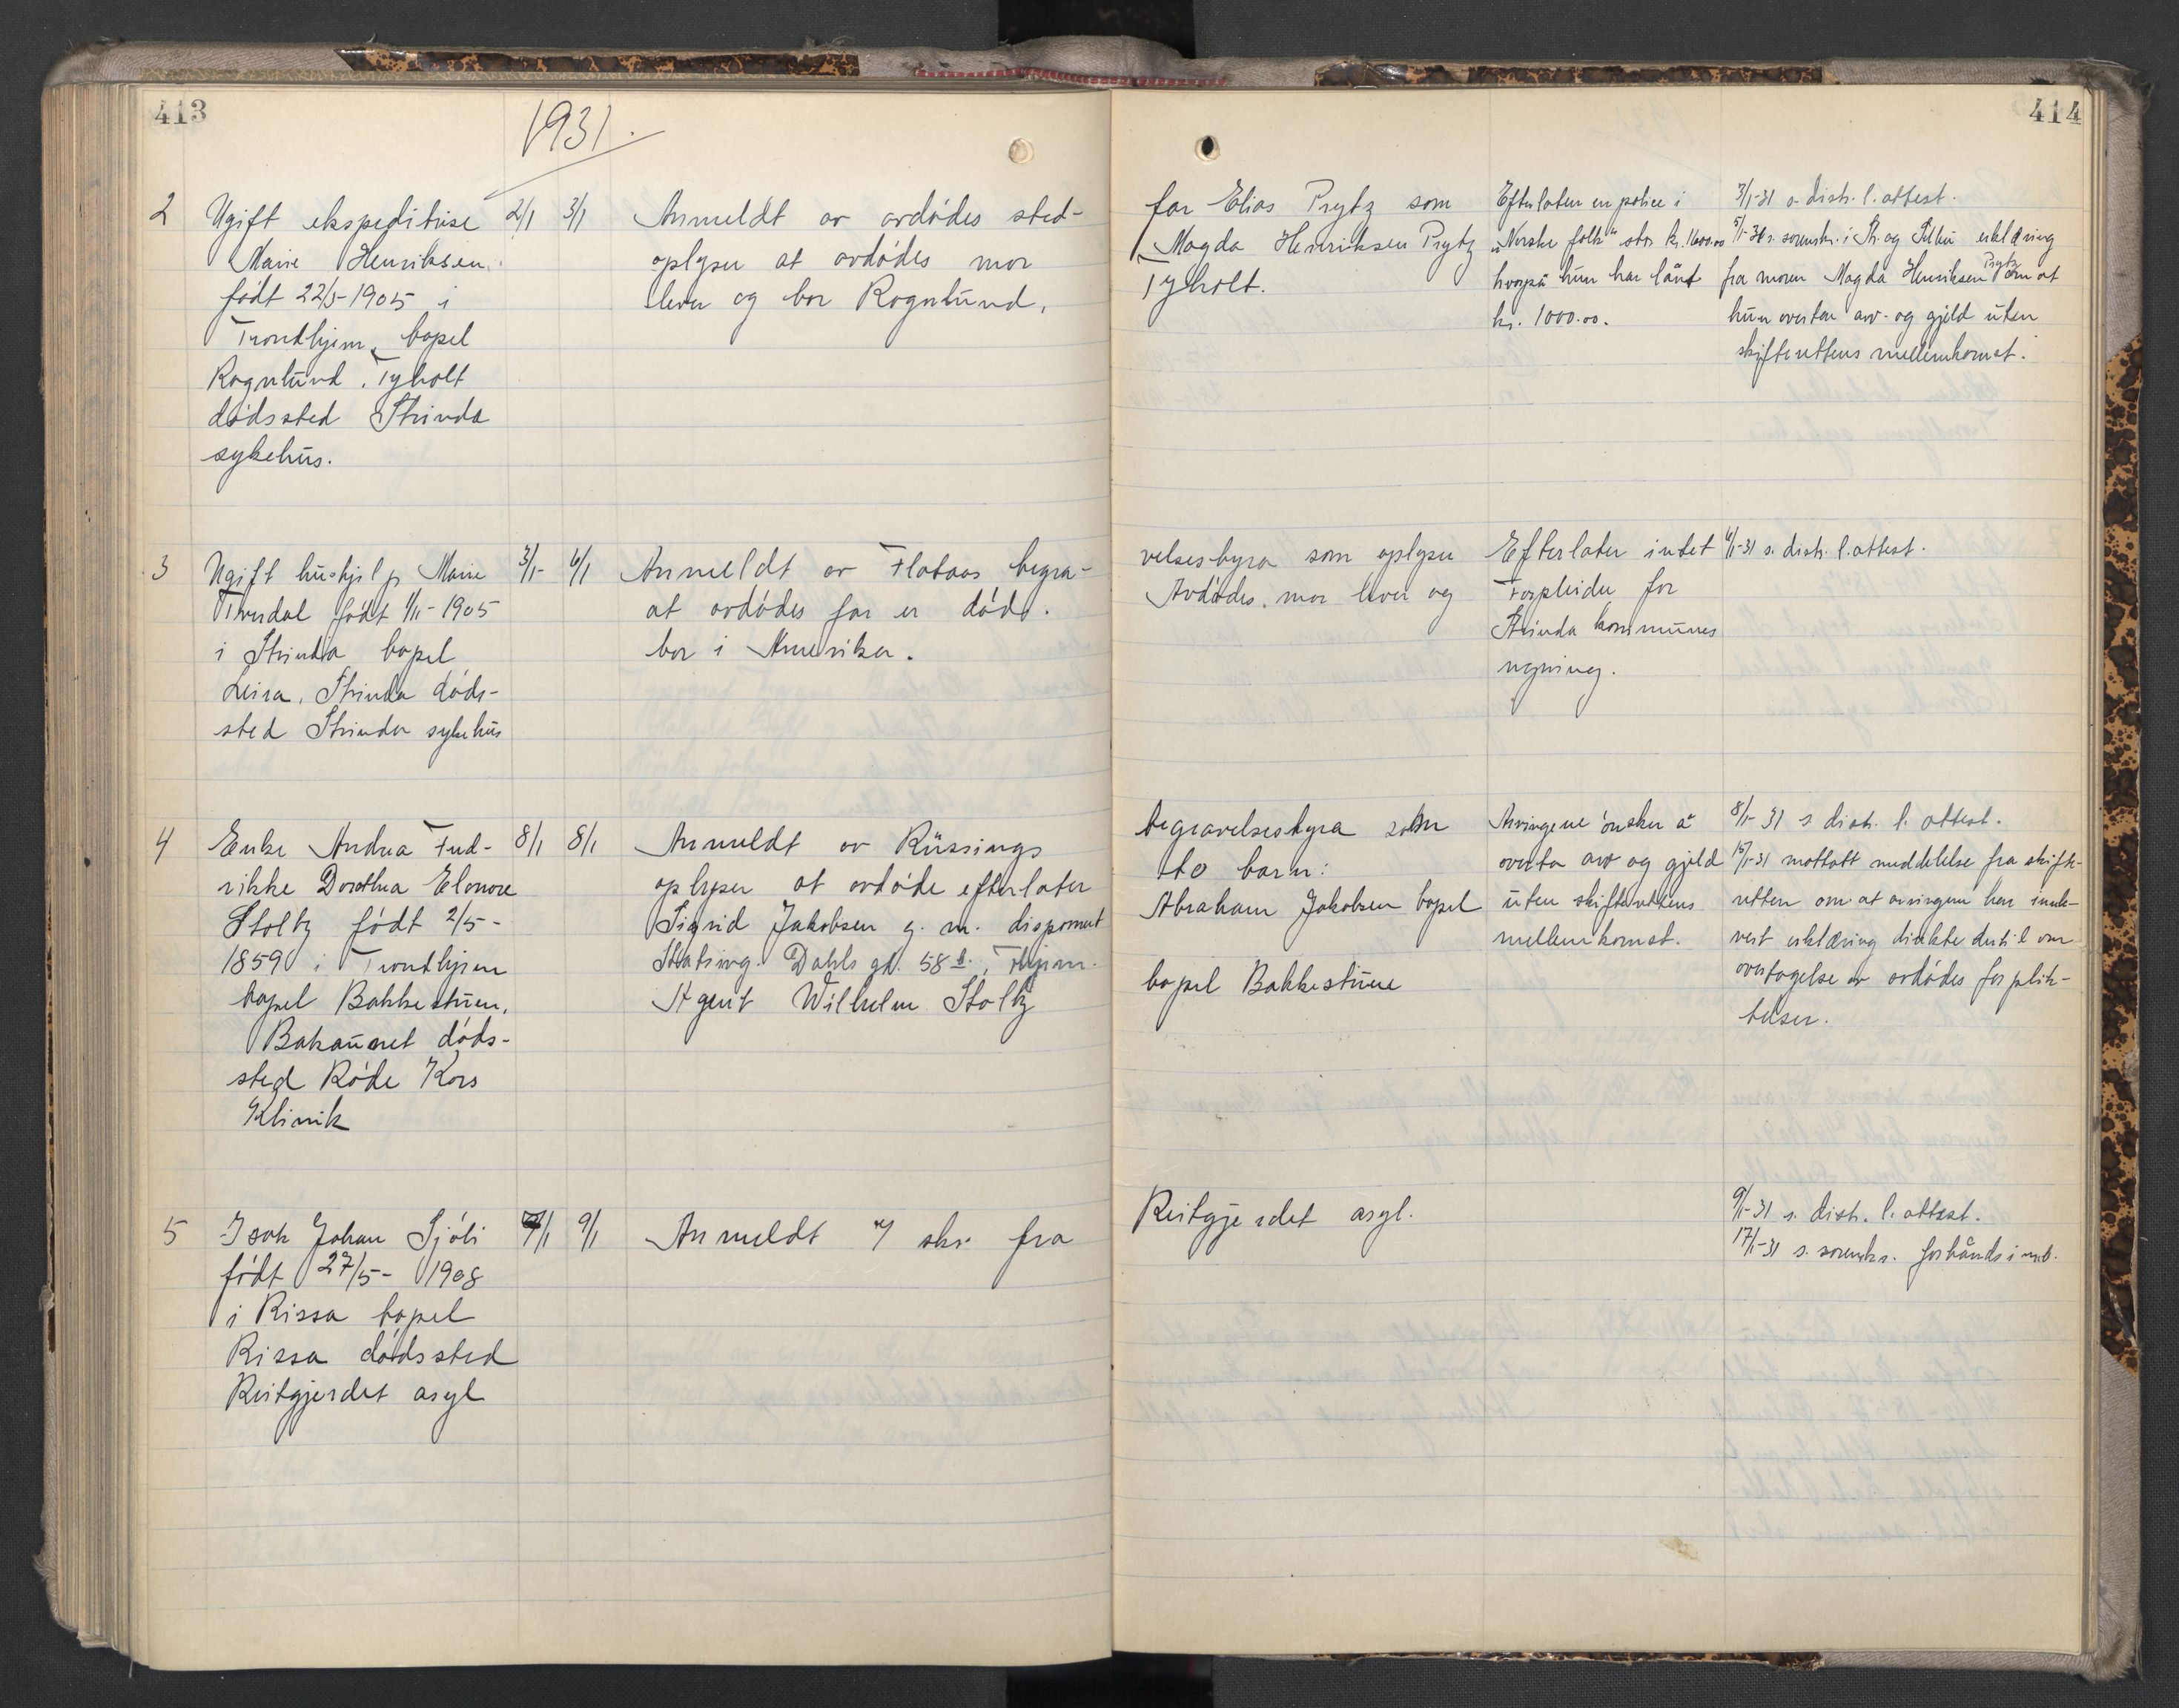 413
1931.
2
Ugift ekspeditrise
Marie Henriksen
født 22/5-1905 i
Trondhjem, bopel
Rognlund, Tyholt
dødssted Strinda
sykehus.
2/1
3/1
Anmeldt av avdødes sted-
oplyser at avdødes mor
lever og bor Rognlund,
3
Ugift hushjelp Marie
født 1/11-1905
i Strinda bopel
Leira, Strinda døds-
sted Strinda sykehus
3/1-
6/1
Anmeldt av Flataas begra-
at avdødes far er død.
bor i Amerika.
4
Enke Andrea Fred-
rikke Dorothea Elonore
Stoltz født 2/5-
1859 i Trondhjem
bopel Bakkestuen,
Bakaunet døds-
sted Røde Kors
Klinik
8/1
8/1
Anmeldt av Rüssings
oplyser at avdøde efterlater
Sigrid Jakobsen g. m. disponent
Statsing. Dahls gt. 58 b., Thjem.
Agent Wilhelm Stoltz
5
Isak Johan Sjøli
født 27/5- 1908
i Rissa bopel
Rissa dødssted
Reitgjerdet asyl
7/1
9/1
Anmeldt skr. fra
414
far Elias Prytz som
Magda Henriksen Prytz
Tyholt.
Efterlater en police i
"Norske folk" stor kr. 1600.00
hvorpå hun har lånt
kr. 1000.00.
3/1-31 s. distr. l. attest.
5/1-31 s. sorenskr. i Str. og Selbu erklæring
fra moren Magda Henriksen Prytz om at
hun overtar arv- og gjeld uten
skifterettens mellemkomst.
velsesbyra som oplyser
Avdødes mor lever og
Efterlater intet
Forpleidn for
Strinda kommunes
regning.
6/1-31 s. distr. l. attest.
begravelsesbyra som
to barn:
Abraham Jakobsen bopel
bopel Bakkestuene
Arvingene ønsker å
overta arv og gjeld
uten skifterettens
mellemkomst.
8/1-31 s distr. l. attest.
15/1-31 mottatt meddelelse fra skifte-
retten om at arvingene har innle-
vert erklæring direkte dertil om
overtagelse av avdødes forplik-
telser.
Reitgjerdet asyl.
9/1-31 s. distr. l. attest.
17/1-31 s. sorenskr. forhåndsinnb.